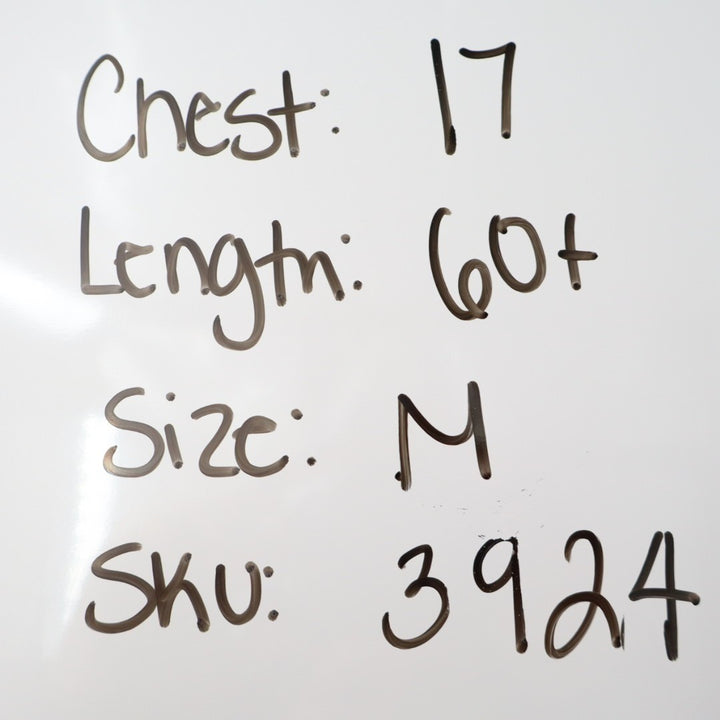 Chest: 17
Length: 60+
Size: M
SKU: 3924